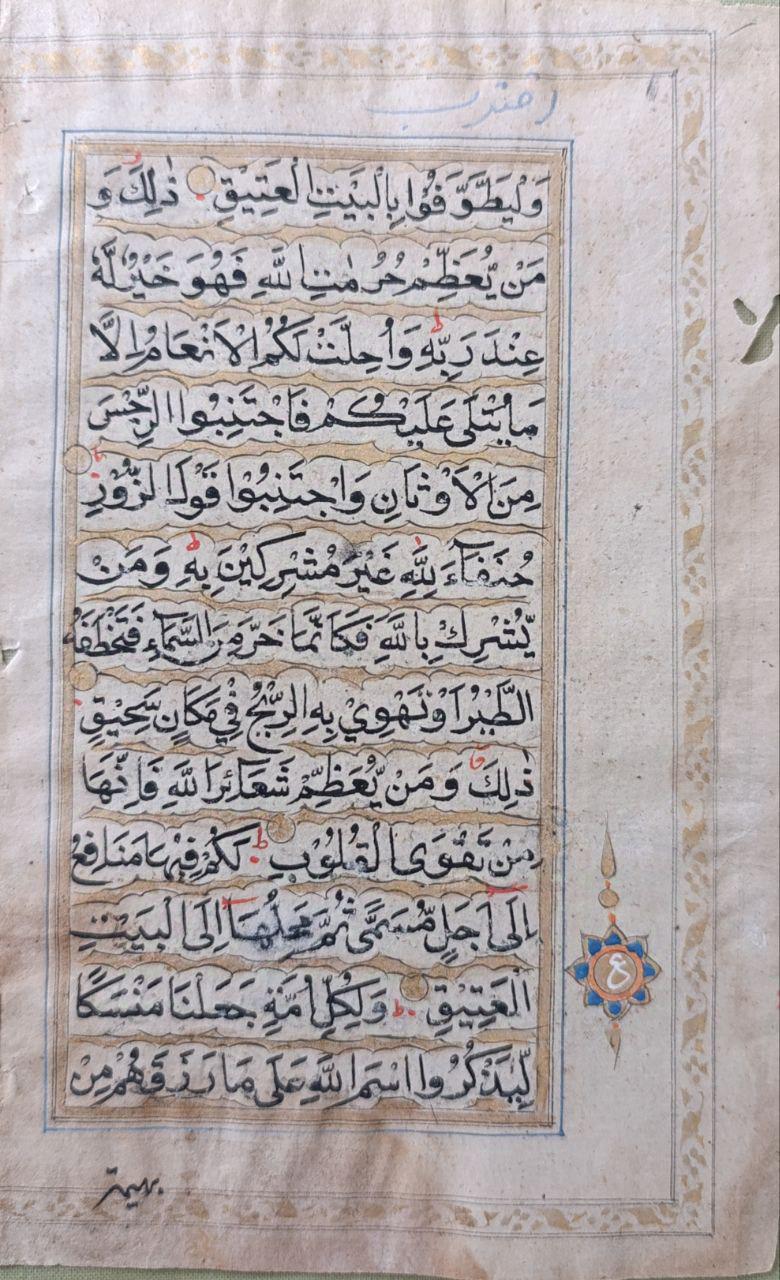 اقترب
وَلْيَطَّوَّفُوْا بِالْبَيْتِ الْعَتِيْقِ ذٰلِكَ وَ
مَنْ يُّعَظِّمْ حُرُمٰتِ اللّٰهِ فَهُوَ خَيْرٌ لَّهٗ
عِنْدَ رَبِّهٖ ط وَاُحِلَّتْ لَكُمُ الْاَنْعَامُ اِلَّا
مَا يُتْلٰى عَلَيْكُمْ فَاجْتَنِبُوا الرِّجْسَ
مِنَ الْاَوْثَانِ وَاجْتَنِبُوْا قَوْلَ الزُّوْرِ
حُنَفَآءَ لِلّٰهِ غَيْرَ مُشْرِكِيْنَ بِهٖ ط وَمَنْ
يُّشْرِكْ بِاللّٰهِ فَكَاَنَّمَا خَرَّ مِنَ السَّمَآءِ فَتَخْطَفُهُ
الطَّيْرُ اَوْ تَهْوِيْ بِهِ الرِّيْحُ فِيْ مَكَانٍ سَحِيْقٍ
ذٰلِكَ ق وَمَنْ يُّعَظِّمْ شَعَآئِرَ اللّٰهِ فَاِنَّهَا
مِنْ تَقْوَى الْقُلُوْبِ ط لَكُمْ فِيْهَا مَنَافِعُ
اِلٰى اَجَلٍ مُّسَمًّى ثُمَّ مَحِلُّهَا اِلَى الْبَيْتِ
الْعَتِيْقِ ط وَلِكُلِّ اُمَّةٍ جَعَلْنَا مَنْسَكًا
لِّيَذْكُرُوا اسْمَ اللّٰهِ عَلٰى مَا رَزَقَهُمْ مِنْ
ع
بهيمة